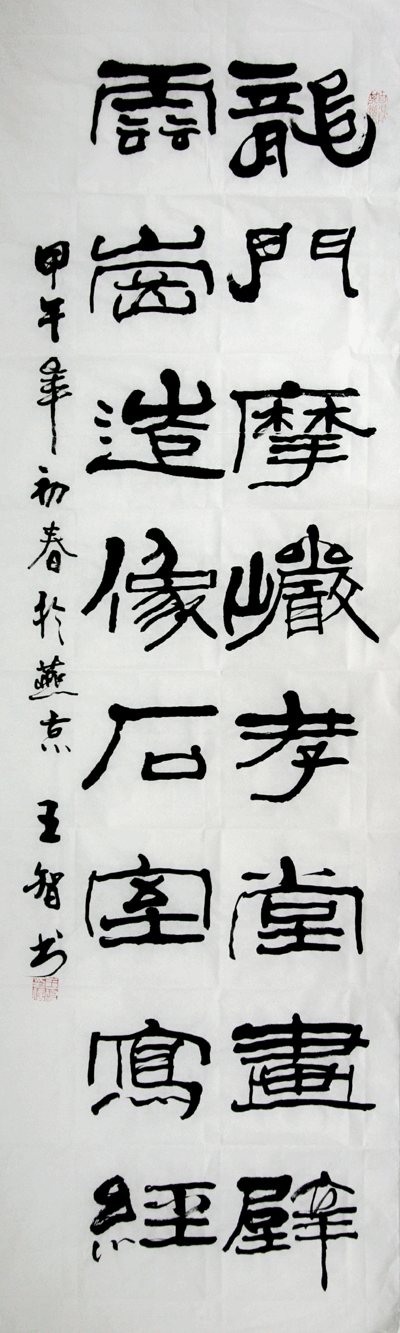 龍門摩巖孝堂畫壁
雲崗造像石室寫經
甲午年初春於燕京 王智书